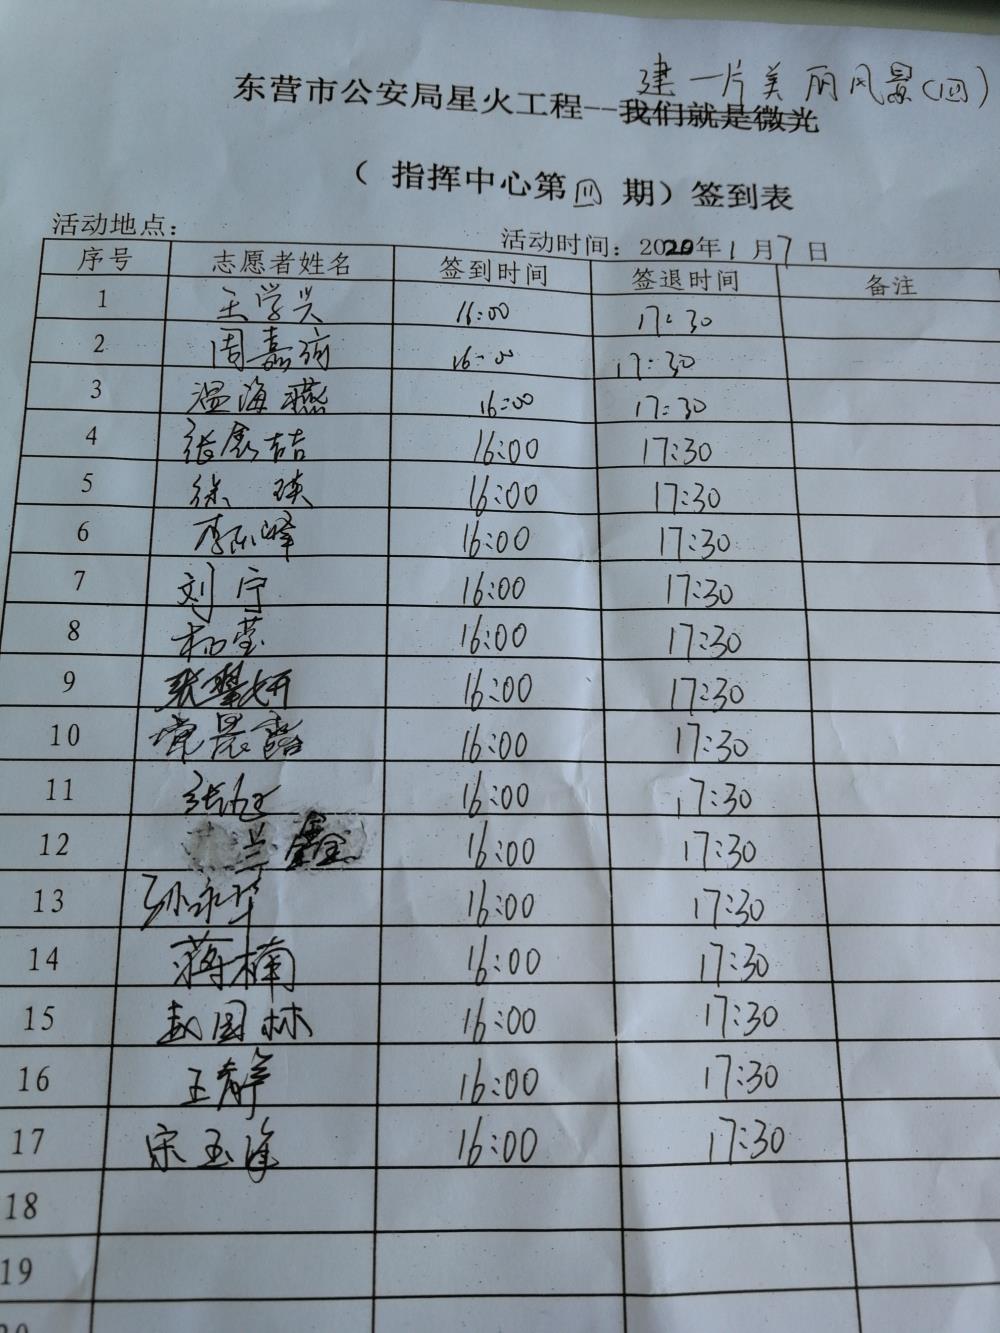 建一片美丽风景(四)
东营市公安局星火工程--我们就是微光
（ 指挥中心第四 期）签到表
活动地点：
活动时间：2020年1月7日
序号 志愿者姓名 签到时间 签退时间 备注
1 王学兴 16:00 17:30
2 周嘉 16:00 17:30
3 温海燕 16:00 17:30
4 张鑫喆 16:00 17:30
5 徐瑛 16:00 17:30
6 李 峰 16:00 17:30
7 刘宁 16:00 17:30
8 杨莹 16:00 17:30
9 张 妍 16:00 17:30
10 常晨露 16:00 17:30
11 张 16:00 17:30
12 兰鑫 16:00 17:30
13 孙永华 16:00 17:30
14 蒋楠 16:00 17:30
15 赵国林 16:00 17:30
16 王静 16:00 17:30
17 宋玉 16:00 17:30
18
19
20